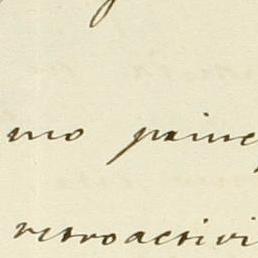 mo princ
retroactivi